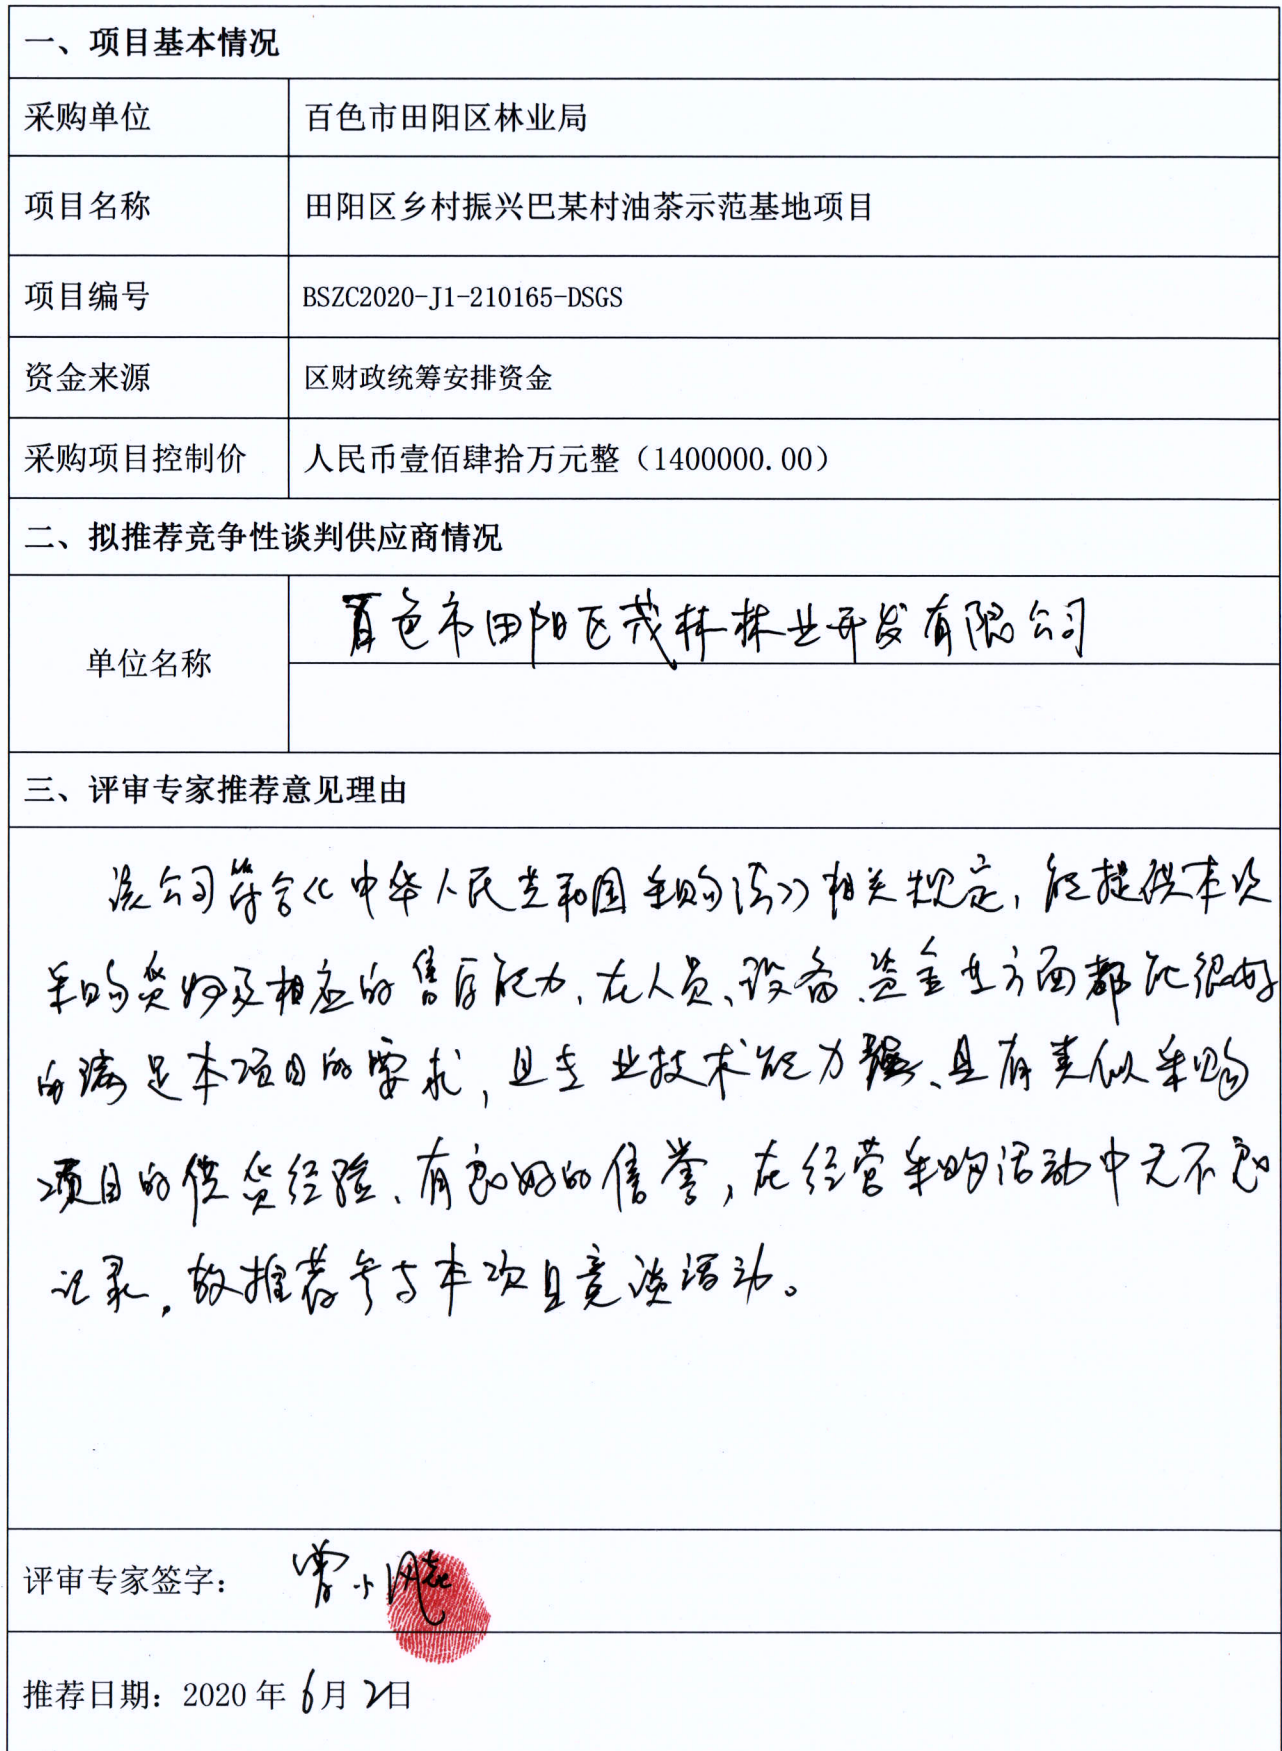 一、项目基本情况
采购单位 百色市田阳区林业局
项目名称 田阳区乡村振兴巴某村油茶示范基地项目
项目编号 BSZC2020-J1-210165-DSGS
资金来源 区财政统筹安排资金
采购项目控制价 人民币壹佰肆拾万元整（1400000.00）
二、拟推荐竞争性谈判供应商情况
百色市田阳区茂林林业开发有限公司
单位名称
三、评审专家推荐意见理由
该公司符合《中华人民共和国采购法》相关规定，能提供本次
采购货物及相应的售后能力、在人员、设备、资金等方面都能很好
的满足本项目的要求，且专业技术能力强、且有类似采购
项目的供货经验、有良好的信誉，在经营采购活动中无不良
记录，故推荐参与本次且竞谈活动。
评审专家签字：曾小
推荐日期：2020年6月2日